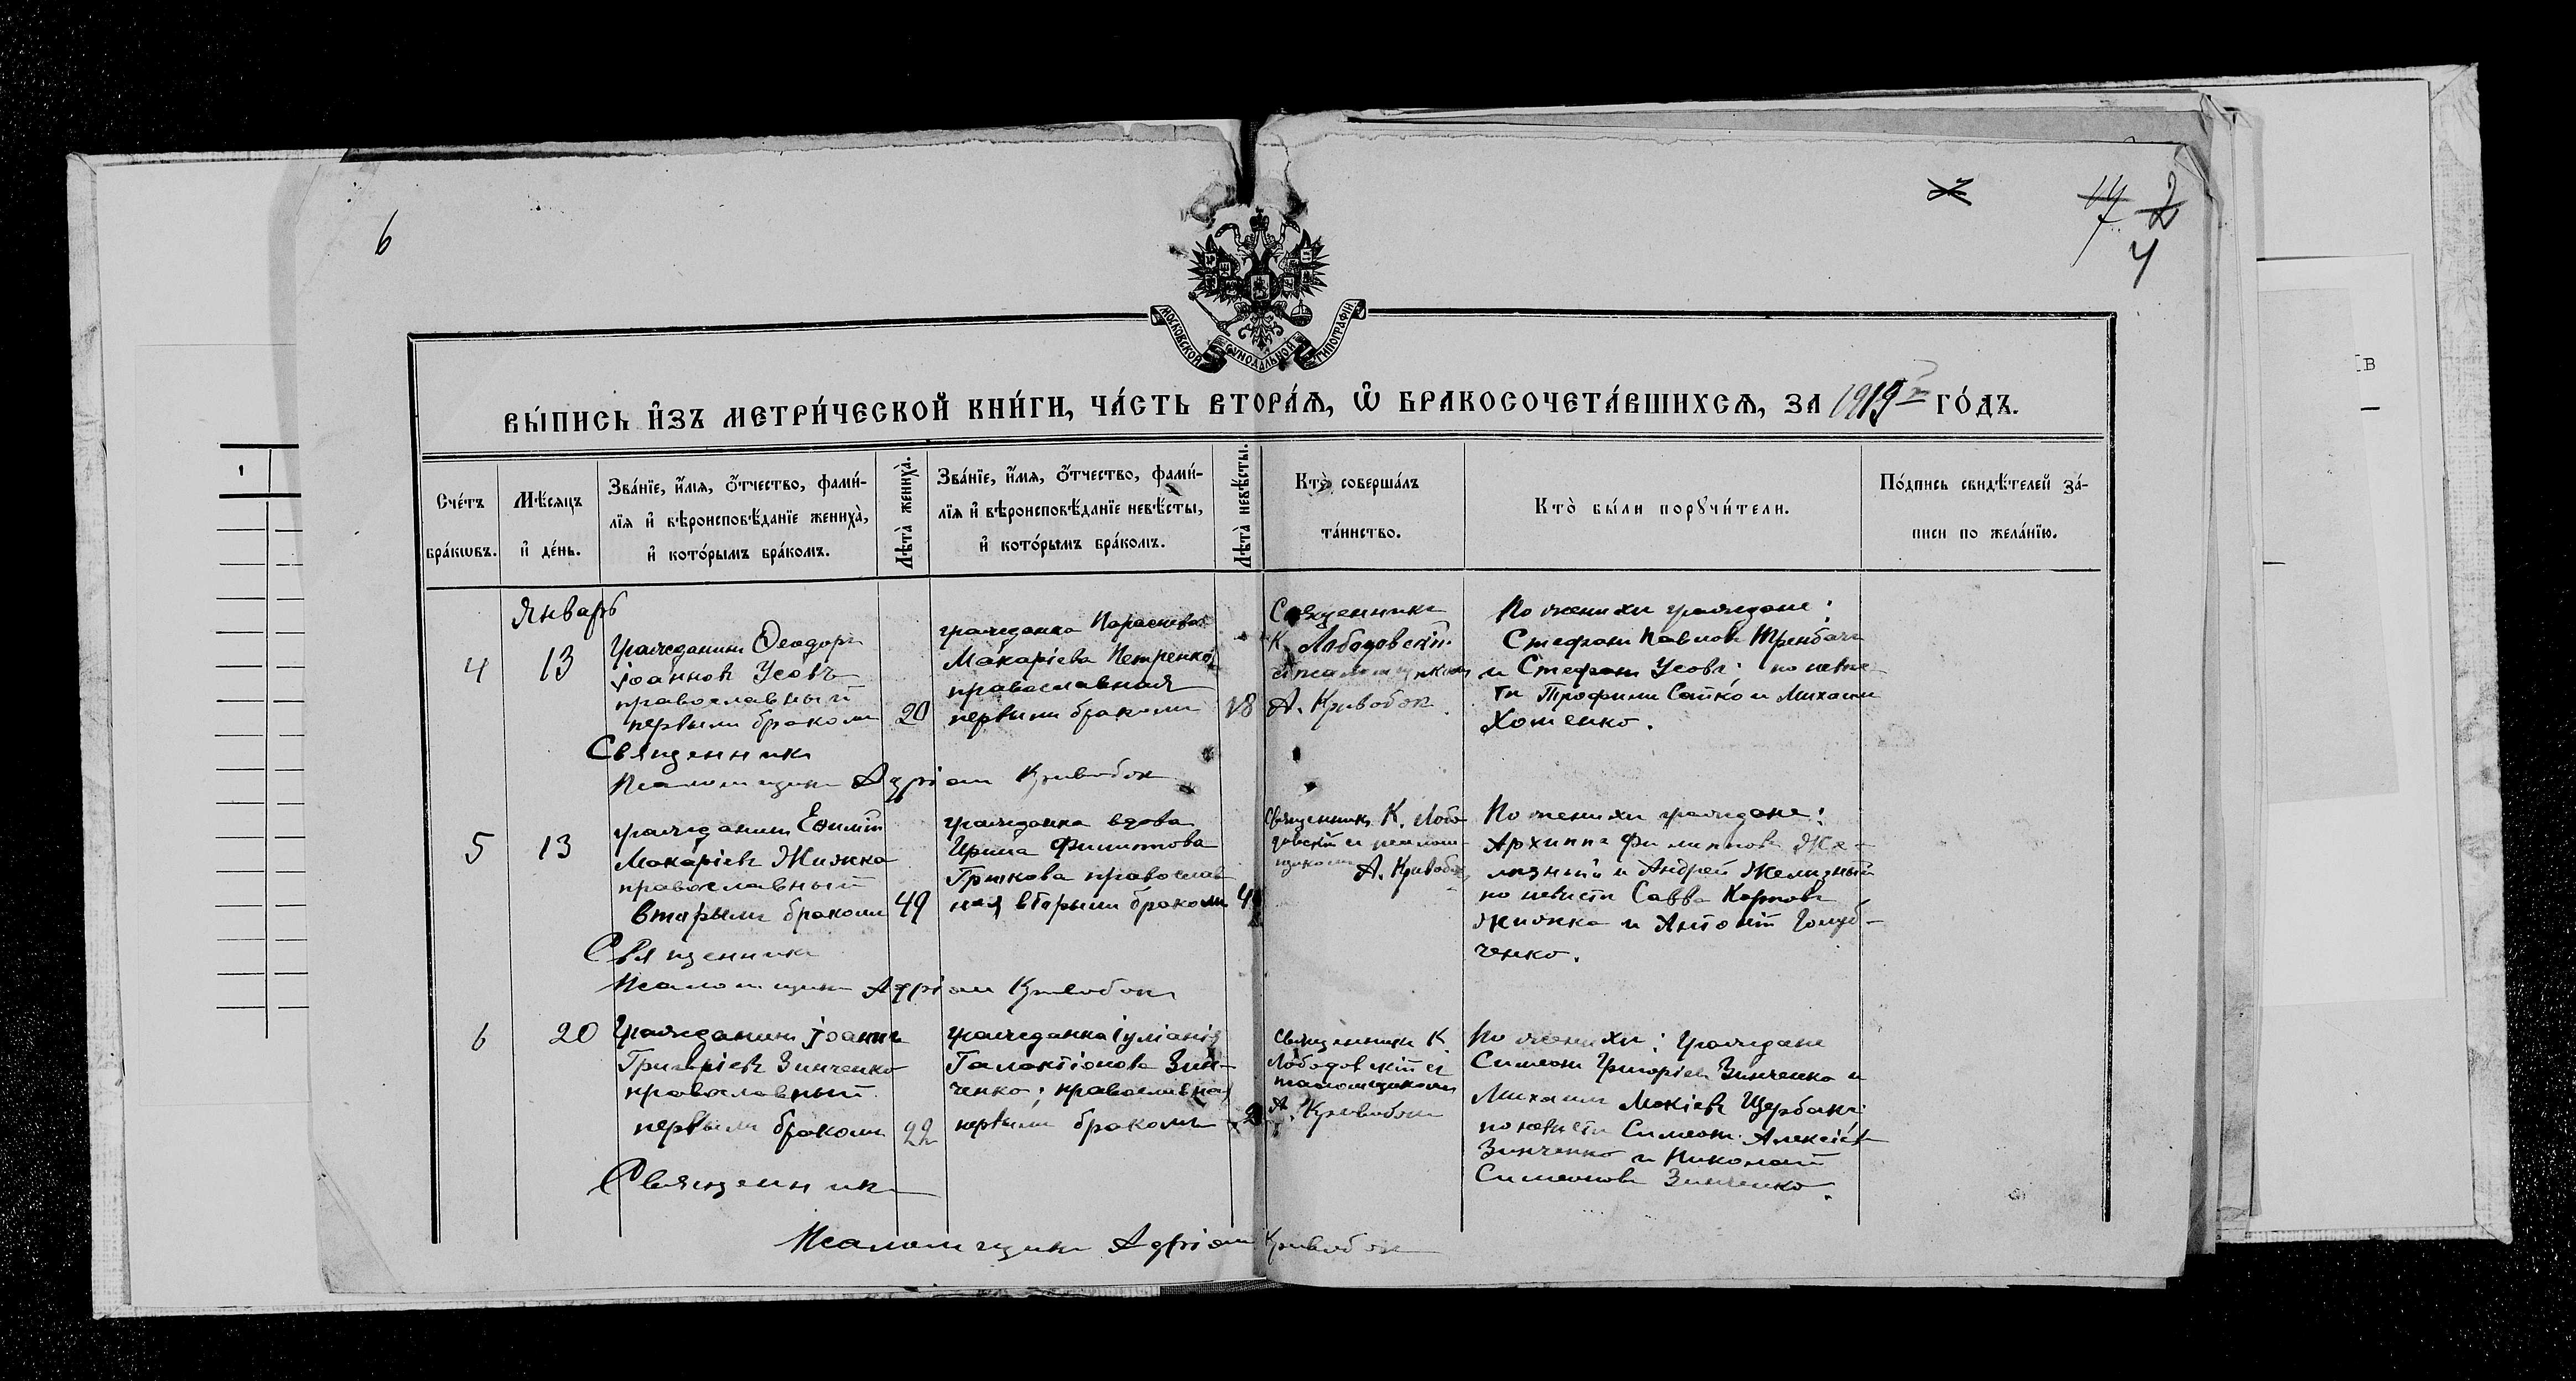 6
7 2
4
МОСКОВСКОЙ СѴНОДАЛЬНОЙ ТИПОГРАФІИ.
ВЫ́ПИСЬ И҆́ЗЪ МЕТРИ́ЧЕСКОЙ КНИ́ГИ, ЧА́СТЬ ВТОРА́Ѧ, Ѽ БРАКОСОЧЕТА́ВШИХСѦ, ЗА 1919 ГО́ДЪ.
Сче́тъ бра́кѡвъ.
Мѣ́сѧцъ и҆ де́нь.
Зва́нїе, и҆́мѧ, ѻ҆́тчество, фами́-
лїѧ и҆ вѣроисповѣ́данїе женихà,
и҆ кото́рымъ бра́комъ.
Лѣ́та женихà.
Зва́нїе, и҆́мѧ, ѻ҆́тчество, фами́-
лїѧ и҆ вѣроисповѣ́данїе невѣ́сты,
и҆ кото́рымъ бра́комъ.
Лѣ́та невѣ́сты.
Кто̀ соверша́лъ
та́инство.
Кто̀ бы́ли порꙋчи́тели.
По́дпись свидѣ́телей за́-
писи по жела́нїю.
Январь
4
13
Гражданинъ Ѳеодоръ
Іоанновъ Усовъ
православный
первымъ бракомъ
20
гражданка Параскева
Макаріева Петренко
православная
первымъ бракомъ
18
Священникъ
К. Лободовскій
с псаломщикомъ
А. Кривобок
По женихѣ граждане:
Стефанъ Павловъ Требачъ
и Стефанъ Усовъ; по невѣс-
тѣ Трофимъ Сайко и Михаилъ
Хоменко.
Священникъ
Псаломщикъ Адріан Кривобок
5
13
гражданинъ Евѳимій
Макаріевъ Жижка
православный
вторымъ бракомъ
49
гражданка вдова
Ирина Филиппова
православ
ная вторымъ бракомъ
Священникъ К. Лобо-
довскій с псалом-
щикомъ А. Кривобок
По женихѣ граждане:
Архиппъ Филипповъ Же-
лизный и Андрей Желизный
по невѣстѣ Савва Карповъ
Жижка и Антоній Голуб-
ченко.
Священникъ
Псаломщикъ Адріан Кривобок
6
20
Гражданинъ Іоаннъ
Григоріевъ Зинченко
православный
первымъ бракомъ
22
гражданка Іуліанія
Галактіонова Зин-
ченко; православная
первымъ бракомъ
Священникъ К.
Лободовскій с
псаломщикомъ
А. Кривобок
По женихѣ: граждане
Симеонъ Григоріевъ Зинченко и
Михаилъ Мокіевъ Щербакъ;
по невѣстѣ Симеонъ Алексіевъ
Зинченко и Николай
Симеоновъ Зинченко.
Священникъ
Псаломщикъ Адріан Кривобок